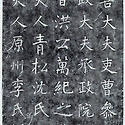 善大夫吏曹參
政大夫承政院
旨洪公萬紀之
夫人青松沈氏
夫人原州李氏